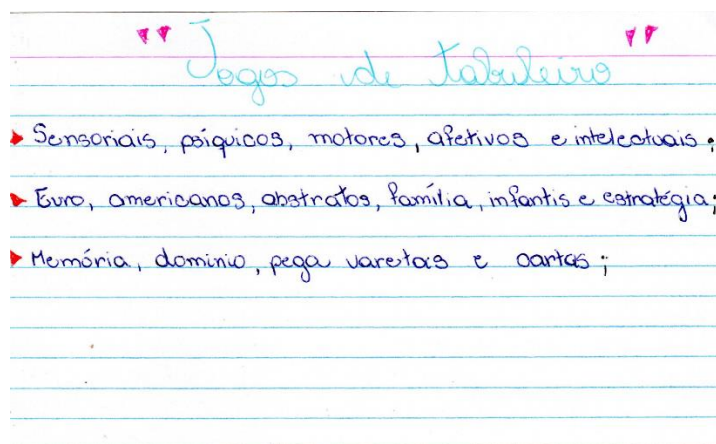 "Jogos de tabuleiro"
Sensoriais, psíquicos, motores, afetivos e intelectuais;
Euro, americanos, abstratos, família, infantis e estratégia;
Memória, dominio, pega varetas e cartas;